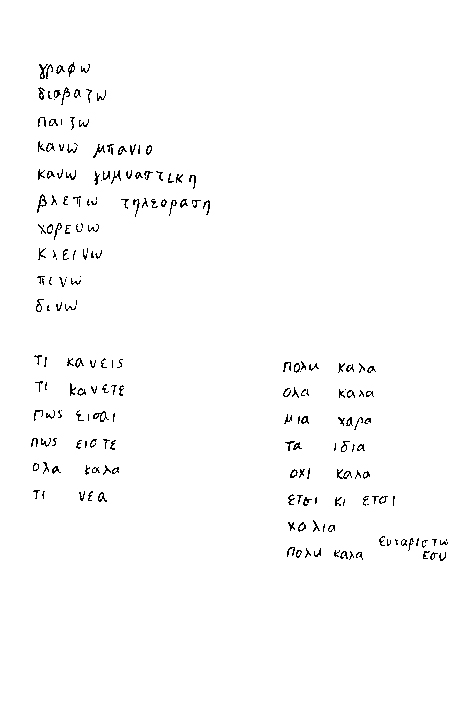 γραφω
διαβαζω
παιζω
κανω μπανιο
κανω γυμναστικη
βλεπω τηλεοραση
χορευω
κλεινω
πενω
δινω
τι κανεις
τι κανετε
πως εισαι
πως ειστε
ολα καλα
τι νεα
πολυ καλα
ολα καλα
μια χαρα
τα ιδια
οχι καλα
ετσι κι ετσι
χαλια
πολυ καλα ευχαριστω
εσυ